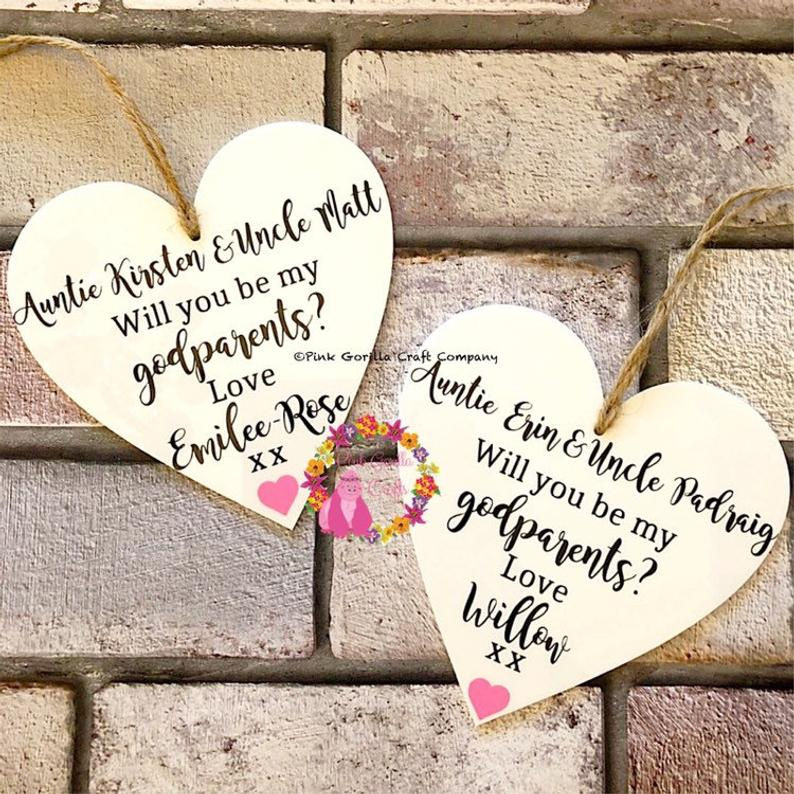 Auntie Kirsten & Uncle Matt
Will you be my
godparents?
Love
Emilee-Rose
xx
©Pink Gorilla Craft Company
Auntie Erin & Uncle Padraig
Will you be my
godparents?
Love
Willow
xx